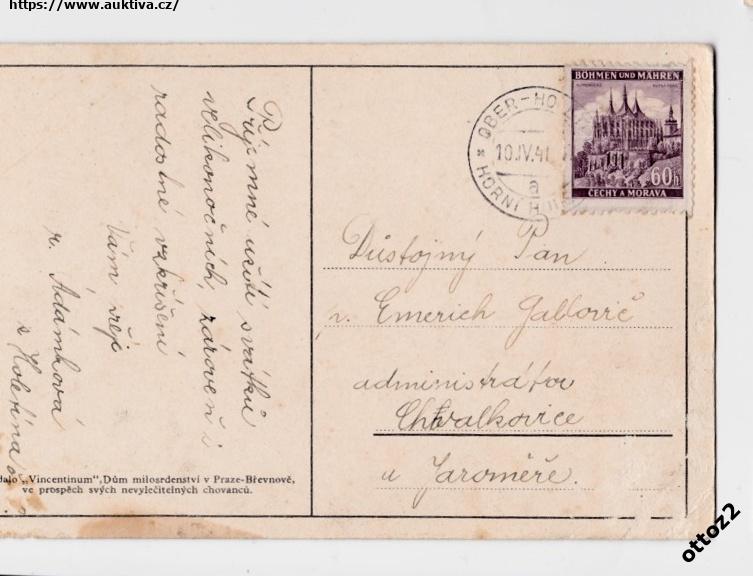 https://www.auktiva.cz/
Příjemné užití svátků
velikonočních, zároveň i
radostné vzkříšení
Vám přeje
r. Adámková
z Holetína
"Vincentinum", Dům milosrdenství v Praze-Břevnově,
ve prospěch svých nevyléčitelných chovanců.
OBER-HO
10.IV.41
a
HORNÍ
BÖHMEN UND MÄHREN
60h
ČECHY A MORAVA
Důstojný Pan
p. Emerich Gablovič
administrátor
Chvalkovice
u Jaroměře.
ottoz2